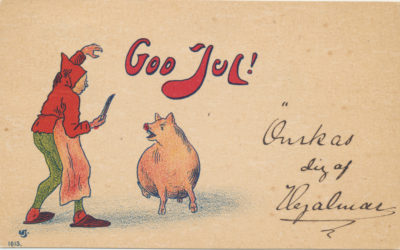 GOD JUL!
"Önskas
dig af
Hjalmar
1015.